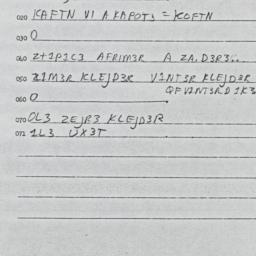 020 KAFTN VI A KAPOTS = KOFTN
030 O
040 Z+1P1C3 AFRIM3R A ZA, D3R3...
050 Z1M3R KLEJD3R V1NT3R KLEJD3R
QFV1NT3RD1K3
060 O
070 OL3 ZEJR3 KLEJD3R
072 1L3 UX3T